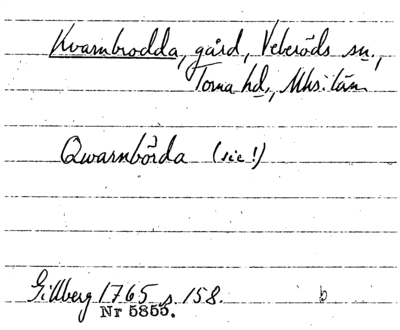 Kvarnbrodda, gård, Veberöds sn.,
Torna hd., Mhs. län
Qwarnbörda (sic!)
Gillberg 1765 s. 158. b
Nr 5855.